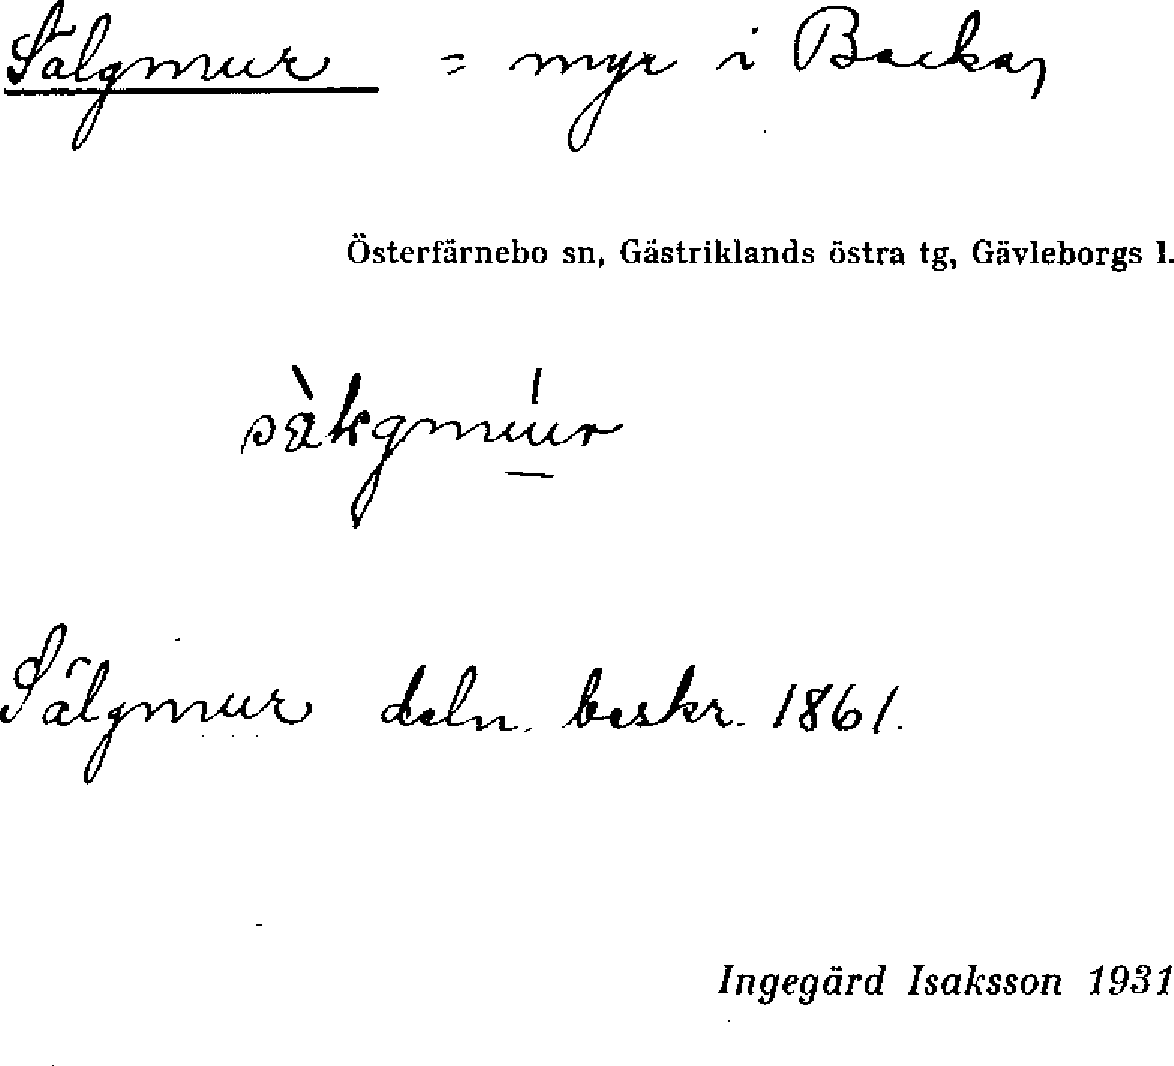 Sälgmur = myr i Backa,
Österfärnebo sn, Gästriklands östra tg, Gävleborgs l.
Sälgmur deln. beskr. 1861.
Ingegärd Isaksson 1931